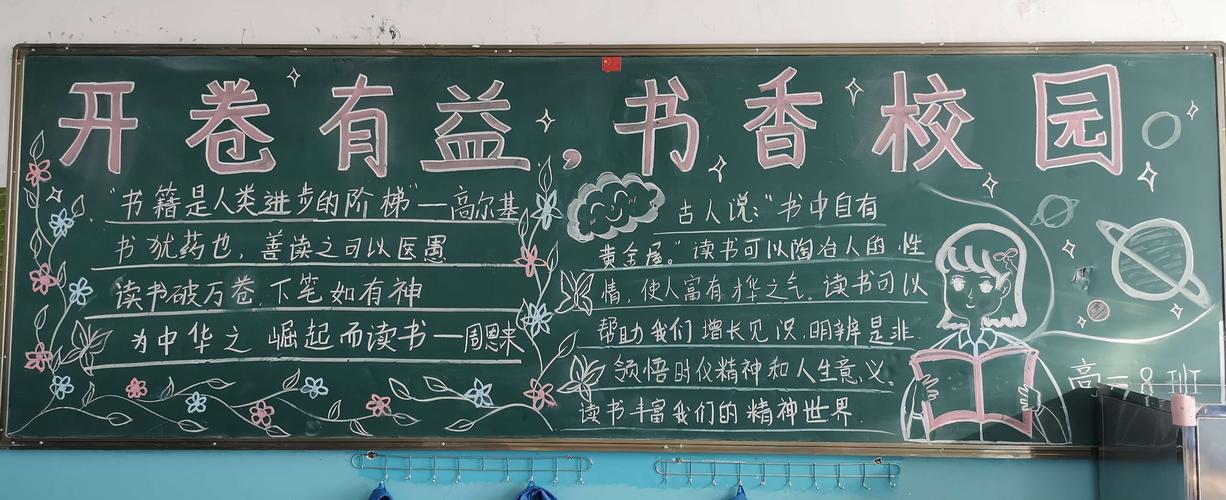 开卷有益，书香校园
“书籍是人类进步的阶梯”—高尔基
书犹药也，善读之可以医愚
读书破万卷，下笔如有神
为中华之崛起而读书—周恩来
古人说：“书中自有
黄金屋。”读书可以陶冶人的性
情，使人富有才华之气。读书可以
帮助我们增长见识，明辨是非.
领悟时仪精神和人生意义。
读书丰富我们的精神世界.
高一8班